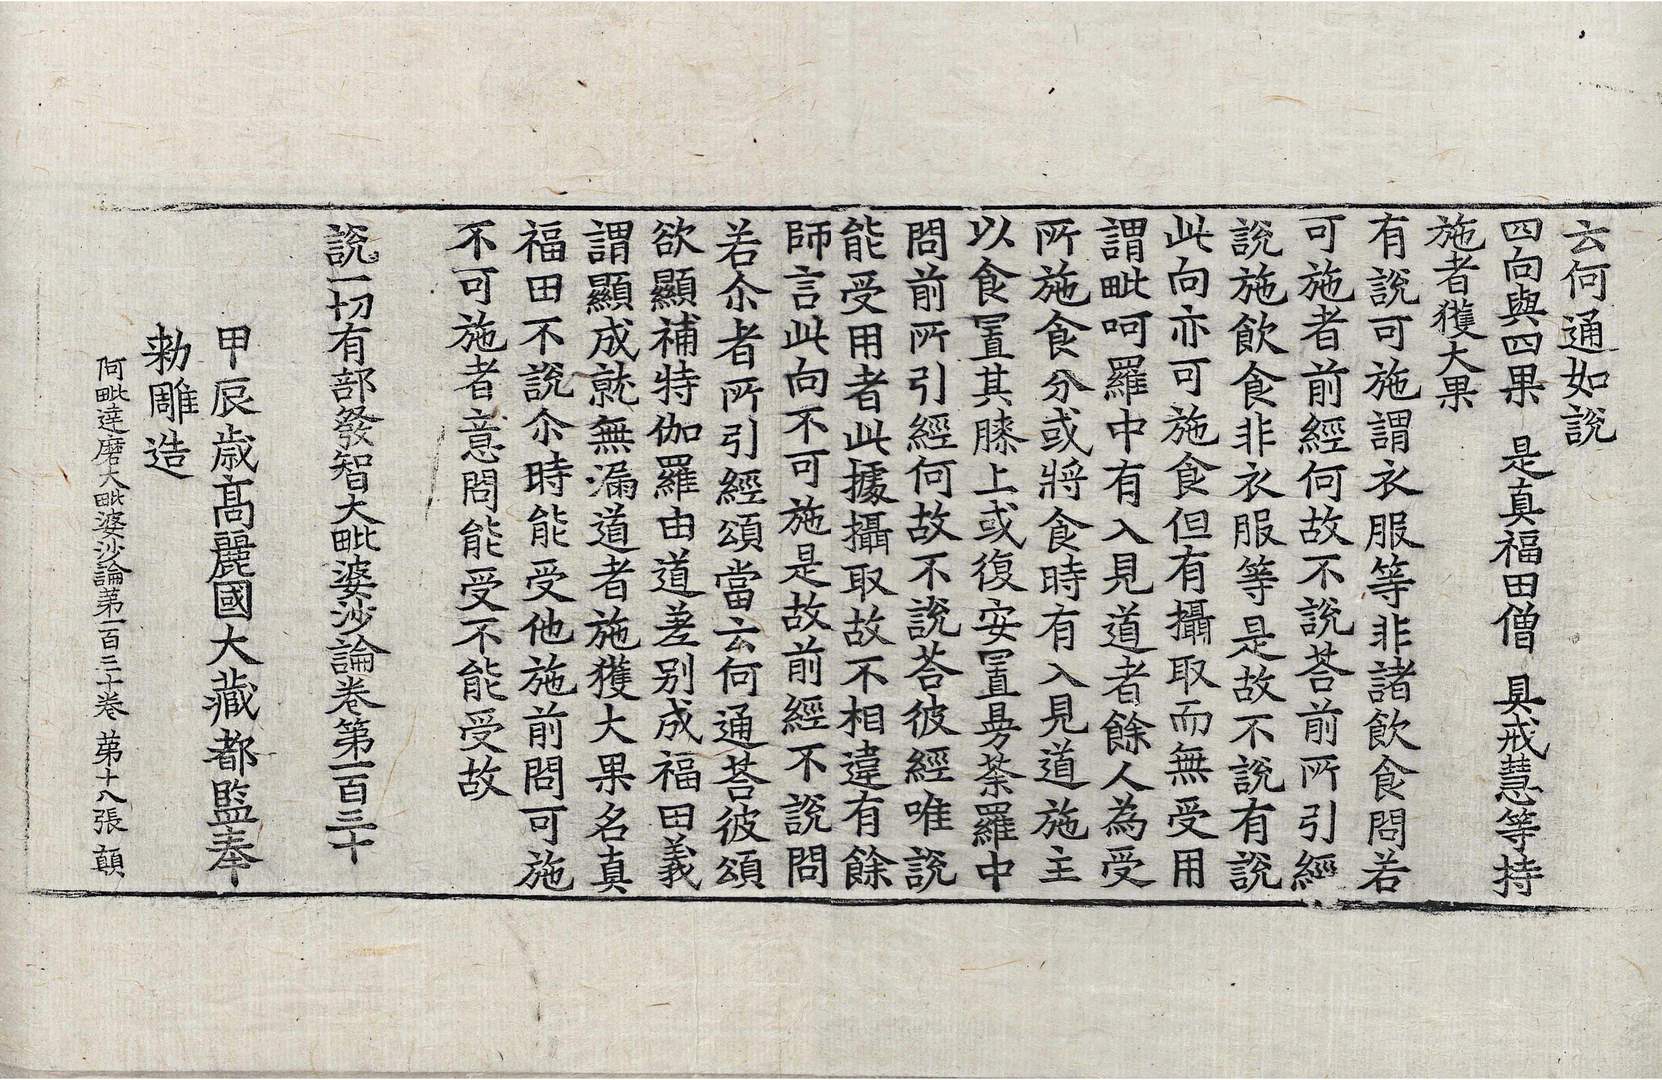 云何通如說
四向與四果　是真福田僧　具戒慧等持
施者獲大果
有說可施謂衣服等非諸飲食問若
可施者前經何故不說荅前所引經
說施飲食非衣服等是故不說有說
此向亦可施食但有攝取而無受用
謂毗呵羅中有入見道者餘人為受
所施食分或將食時有入見道施主
以食置其膝上或復安置曼荼羅中
問前所引經何故不說荅彼經唯說
能受用者此據攝取故不相違有餘
師言此向不可施是故前經不說問
若尒者所引經頌當云何通荅彼頌
欲顯補特伽羅由道差別成福田義
謂顯成就無漏道者施獲大果名真
福田不說尒時能受他施前問可施
不可施者意問能受不能受故
說一切有部發智大毗婆沙論卷第一百三十
甲辰歳高麗國大藏都監奉
勅雕造
阿毗達磨大毗婆沙論第一百三十卷　第十八張　顛